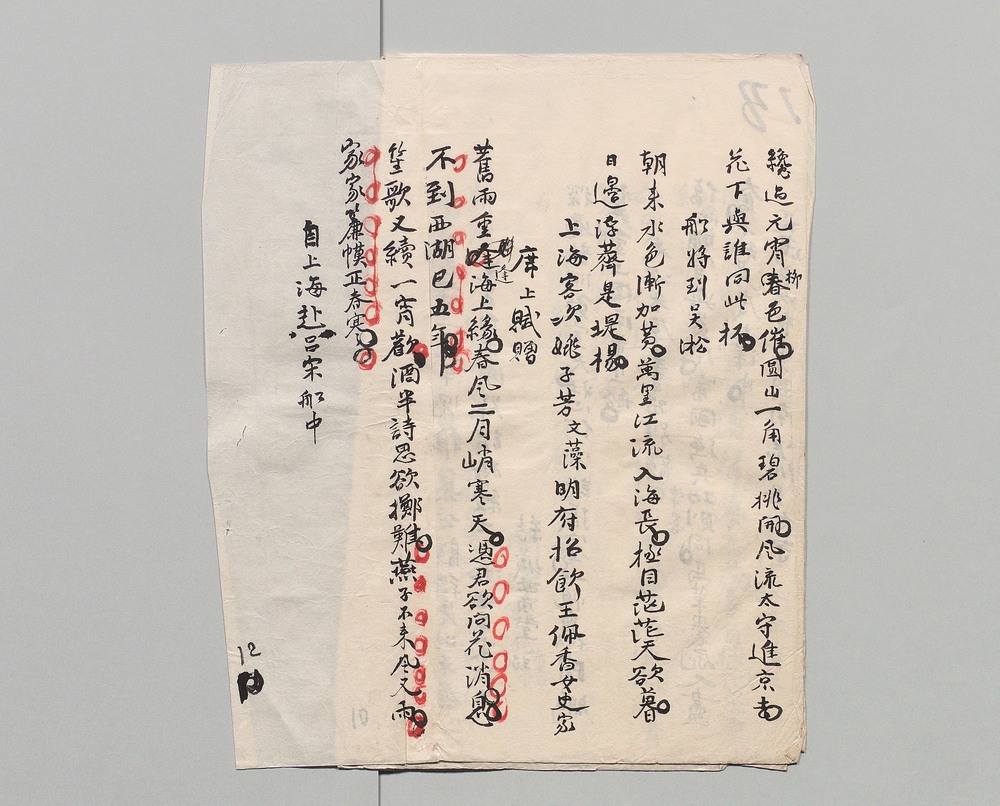 纔過元宵春色催圓山一角碧桃開風流太守進京去
柳
花下與誰同此杯
船將到吳淞
朝來水色漸加黃萬里江流入海長極目茫茫天欲暮
日邊浮薺是堤楊
上海客次姚子芳文藻明府招飲王佩香女史家
席上賦贈
聯逢
舊雨重 海上緣春風二月峭寒天遇君欲問花消息
不到西湖已五年
笙歌又續一宵歡酒半詩思欲擲難燕子不來風又雨
家家簾幙正春寒
自上海赴呂宋船中
12